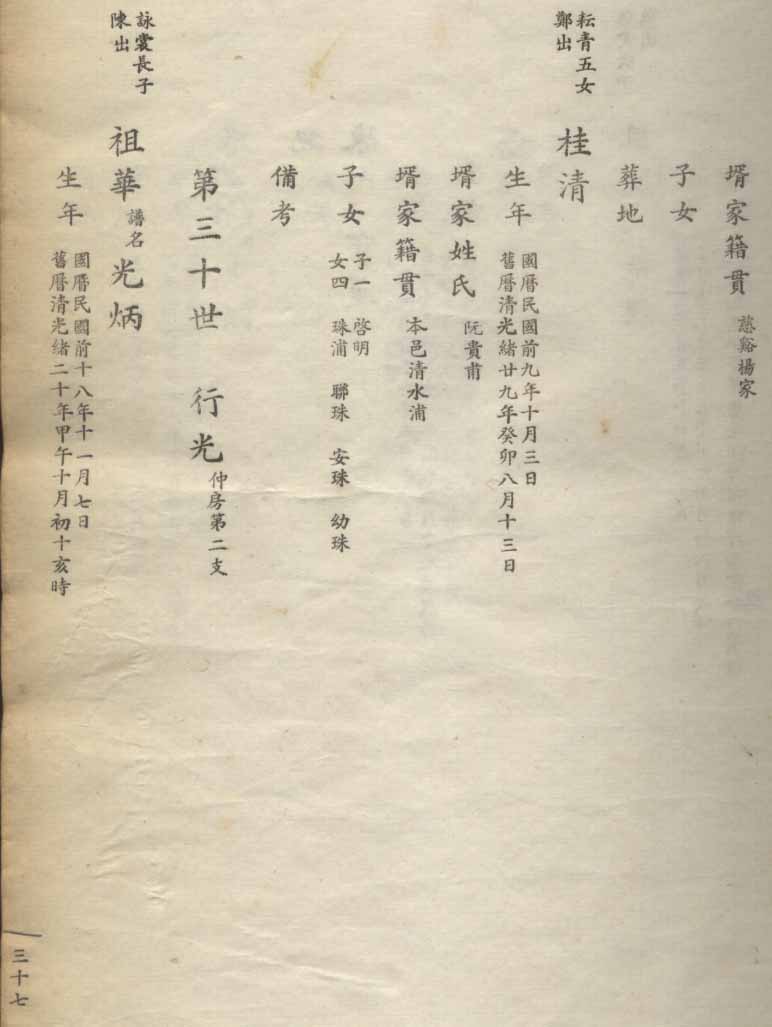 壻家籍貫 慈谿楊家
子女
葬地
耘青五女
鄭出
桂清
生年
國曆民國前九年十月三日
舊曆清光緒廿九年癸卯八月十三日
壻家姓氏 阮貴甫
壻家籍貫 本邑清水浦
子女
子一 啓明
女四 珠浦 聯珠 安珠 幼珠
備考
第三十世 行光 仲房第二支
詠裳長子
陳出
祖華 譜名 光炳
生年
國曆民國前十八年十一月七日
舊曆清光緒二十年甲午十月初十亥時
三十七